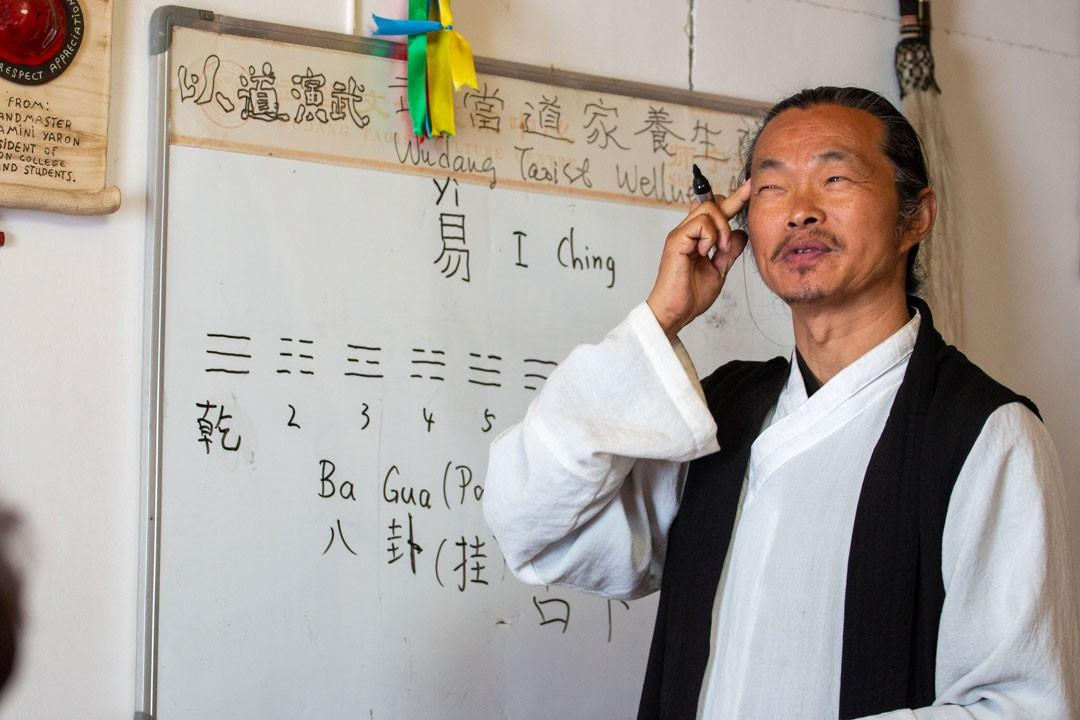 RESPECT APPRECIATION
FROM:
ANDMASTER
AMINI YARON
SIDENT OF
ON COLLEGE
ND STUDENTS.
以道演武 當道家養生
Wudang Taoist Welln
Yi
易 I Ching
乾 2 3 4 5
Ba Gua (Pa
八 卦 (挂